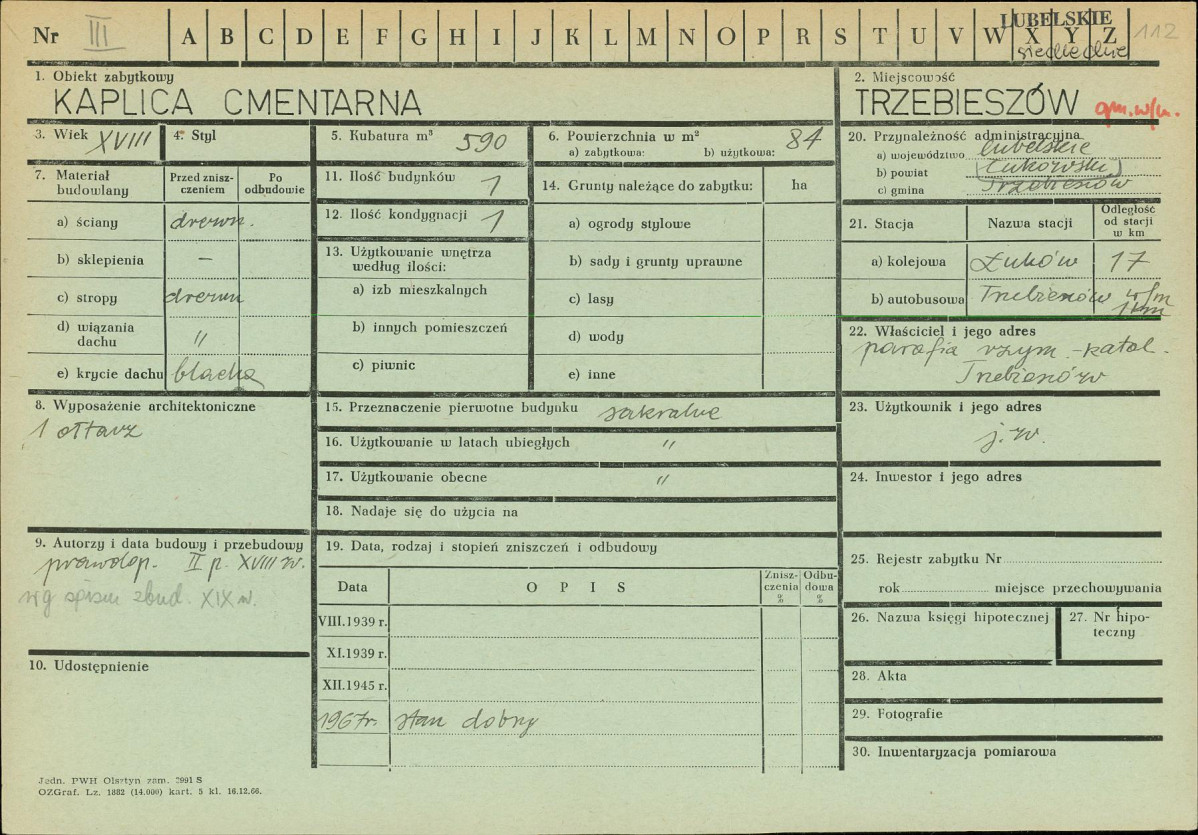 Nr III A B C D E F G H I J K L M N O P R S T U V W X Y Z 112
LUBELSKIE
siedleckie
1. Obiekt zabytkowy
KAPLICA CMENTARNA
2. Miejscowość
TRZEBIESZÓW gm. w/m.
3. Wiek XVIII
4. Styl
5. Kubatura m³ 590
6. Powierzchnia w m² 84
a) zabytkowa: b) użytkowa:
7. Materiał budowlany
Przed zniszczeniem
Po odbudowie
a) ściany drewn.
b) sklepienia –
c) stropy drewn
d) wiązania dachu "
e) krycie dachu blacha
8. Wyposażenie architektoniczne
1 ołtarz
9. Autorzy i data budowy i przebudowy
prawdop. II p. XVIII w.
wg spisu zbud. XIX w.
10. Udostępnienie
11. Ilość budynków 1
12. Ilość kondygnacji 1
13. Użytkowanie wnętrza
według ilości:
a) izb mieszkalnych
b) innych pomieszczeń
c) piwnic
14. Grunty należące do zabytku: ha
a) ogrody stylowe
b) sady i grunty uprawne
c) lasy
d) wody
e) inne
15. Przeznaczenie pierwotne budynku sakralne
16. Użytkowanie w latach ubiegłych "
17. Użytkowanie obecne "
18. Nadaje się do użycia na
19. Data, rodzaj i stopień zniszczeń i odbudowy
Data OPIS Zniszczenia % Odbudowa %
VIII.1939 r.
XI.1939 r.
XII.1945 r.
1967r. stan dobry
20. Przynależność administracyjna
a) województwo lubelskie
b) powiat (łukowski)
c) gmina Trzebieszów
21. Stacja Nazwa stacji Odległość od stacji w km
a) kolejowa Łuków 17
b) autobusowa Trzebieszów w/m
1 km
22. Właściciel i jego adres
parafia rzym.-katol.
Trzebieszów
23. Użytkownik i jego adres
j.w.
24. Inwestor i jego adres
25. Rejestr zabytku Nr
rok miejsce przechowywania
26. Nazwa księgi hipotecznej
27. Nr hipoteczny
28. Akta
29. Fotografie
30. Inwentaryzacja pomiarowa
Jedn. PWH Olsztyn zam. 2991 S
OZGraf. Lz. 1882 (14.000) kart. 5 kl. 16.12.66.